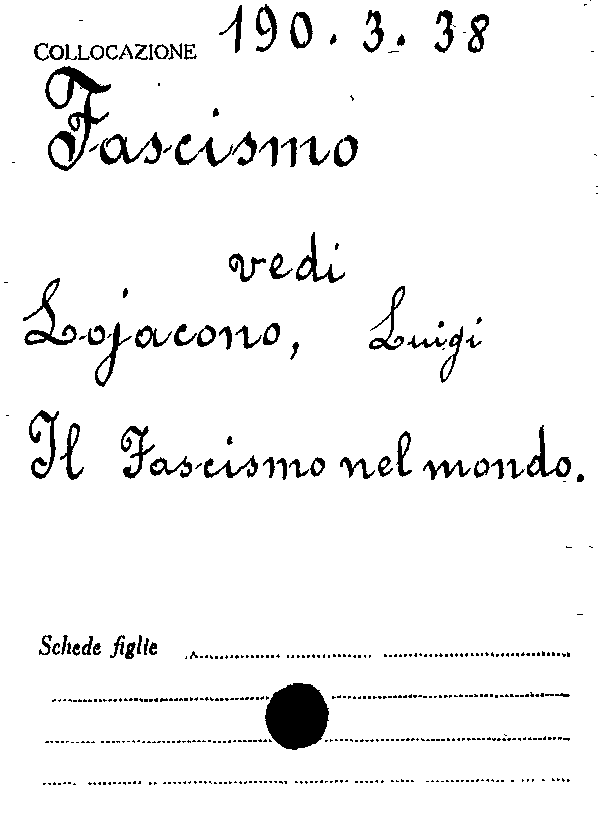 COLLOCAZIONE 190.3.38
Fascismo
vedi
Lojacono, Luigi
Il Fascismo nel mondo.
Schede figlie